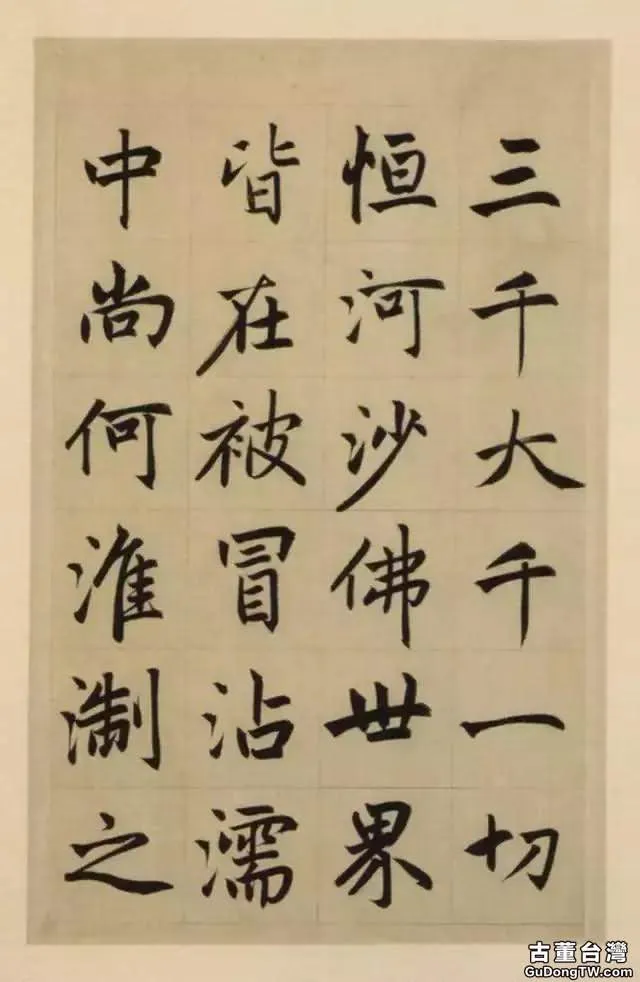 三千大千一切
恒河沙佛世界
皆在被冒沾濡
中尚何淮淛之
古董台灣
GuDongTW.com